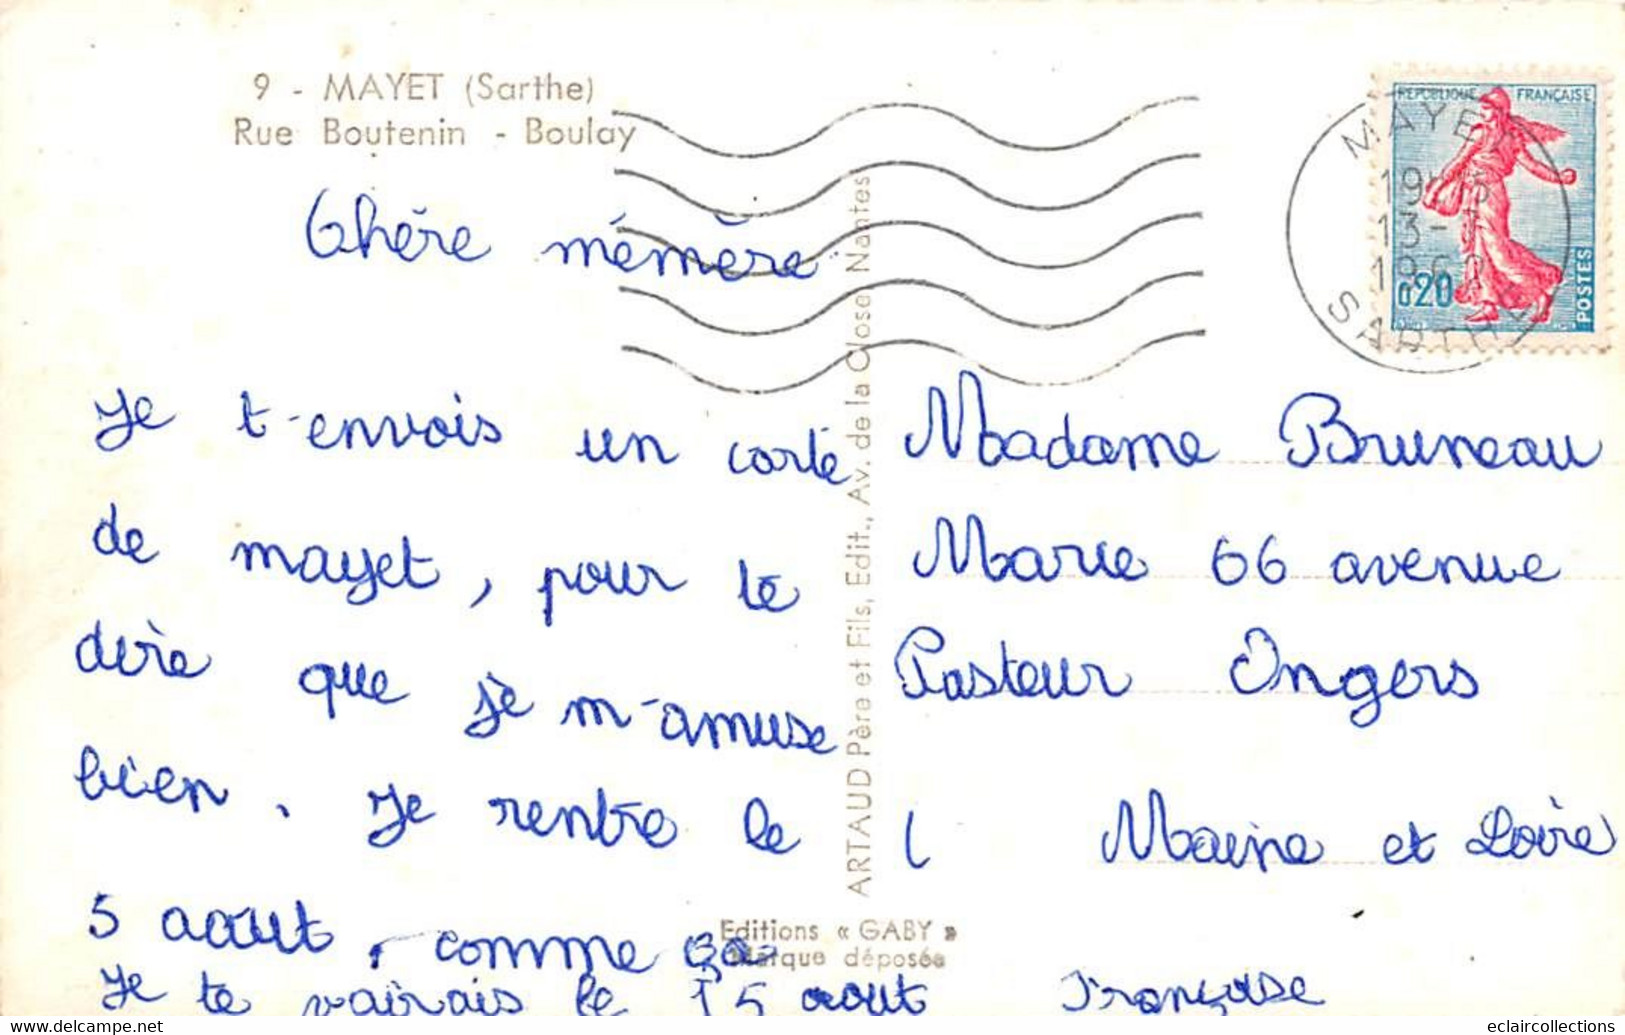 9 - MAYET (Sarthe)
Rue Boutenin - Boulay
REPUBLIQUE FRANÇAISE
0,20
POSTES
MAYET
13-7
SARTHE
Chère mémère
Je t-envois un carte
de mayet, pour te
dire que je m-amuse
bien. Je rentre le
5 aout, comme ça
Je te vairais le 15 aout Françoise
ARTAUD Père et Fils, Edit., Av. de la Close, Nantes
Madame Bruneau
Marie 66 avenue
Pasteur Angers
( Maine et Loire
Editions « GABY »
Marque déposée
www.delcampe.net
eclaircollections